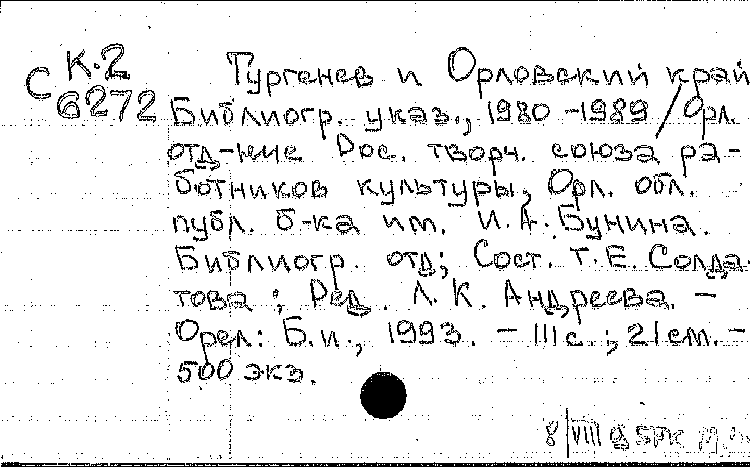 К.2
С 6272
Тургенев и Орловский край
Библиогр. указ., 1980-1989 / Орл.
отд-ние Рос. творч. союза ра-
ботников культуры, Орл. обл.
публ. б-ка им. И.А. Бунина.
Библиогр. отд; Сост. Т.Е. Солда-
това; Ред. Л.К. Андреева. -
Орел: Б.и., 1993. - 111 с.; 21 см. -
500 экз.
8/VIII